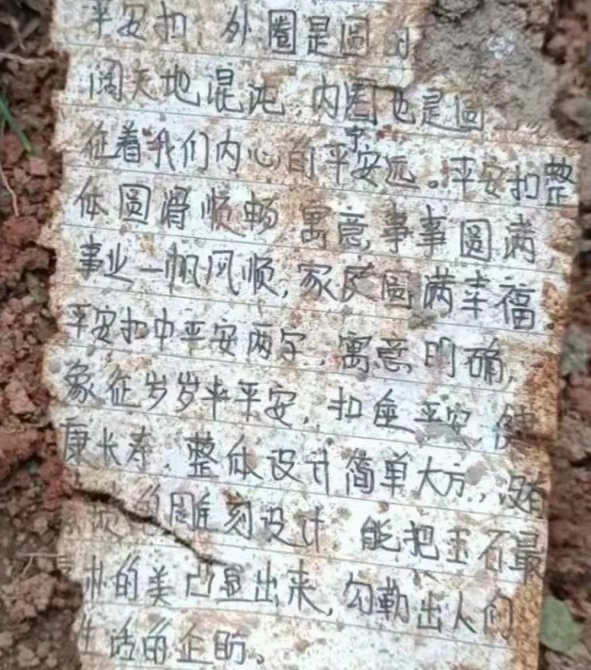 平安扣，外圈是圆
阔天地混沌，内圈也是圆
征着我们内心的平安宁远。平安扣整
体圆滑顺畅 寓意事事圆满
事业一帆风顺，家庭圆满幸福
平安扣中平安两字，寓意明确，
象征岁岁平平安，扣座平安 健
康长寿，整体设计简单大方，没有
的雕刻设计，能把玉石最
的美凸显出来，勾勒出人们
生活的企盼。